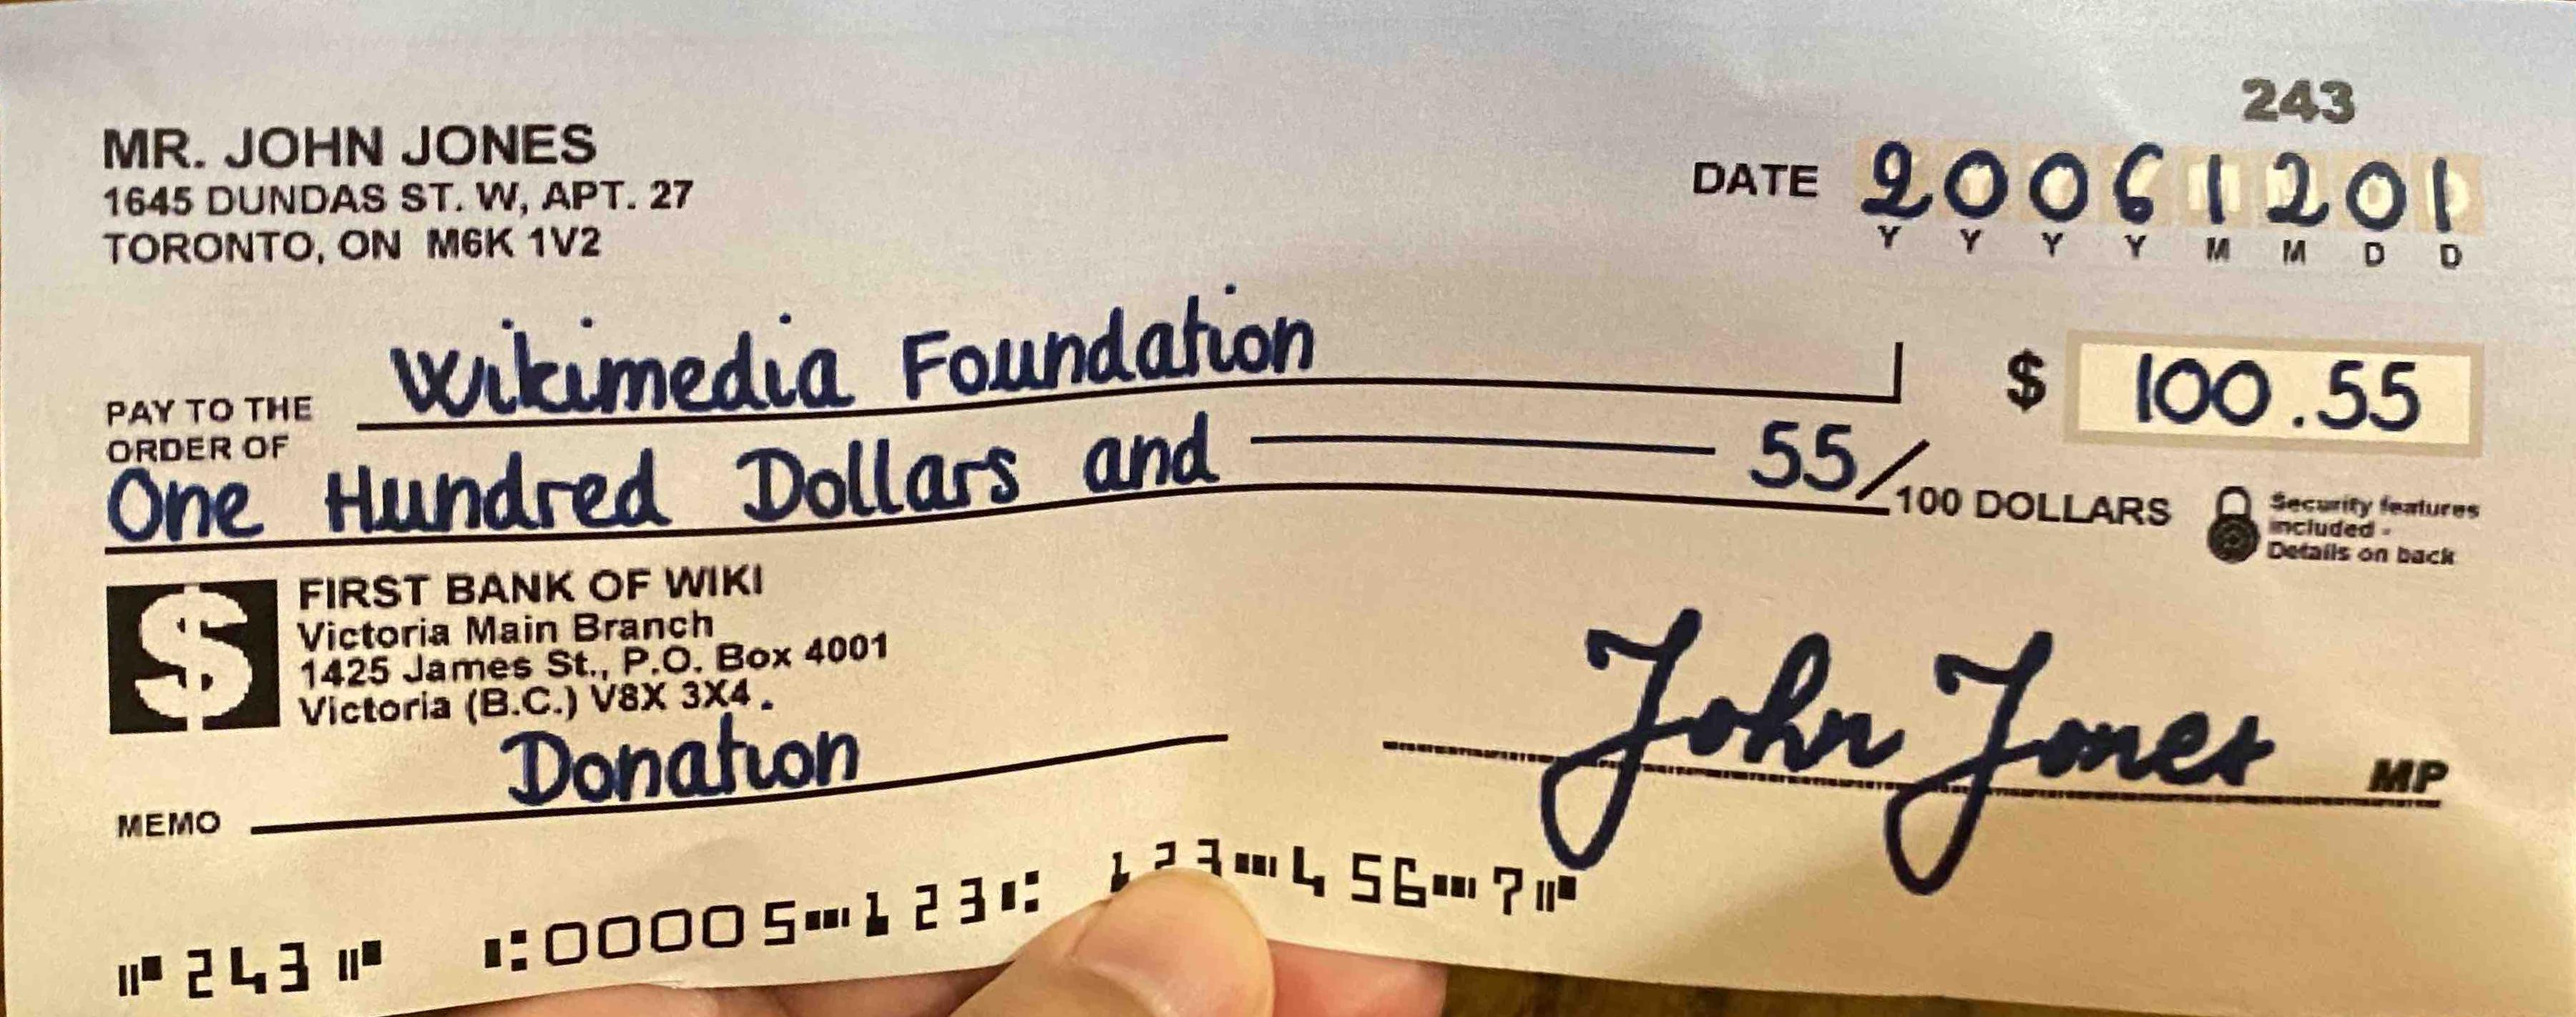 243
MR. JOHN JONES
1645 DUNDAS ST. W, APT. 27
TORONTO, ON M6K 1V2
DATE 20061201
Y Y Y Y M M D D
PAY TO THE
ORDER OF
Wikimedia Foundation
$ 100.55
One Hundred Dollars and 55/100 DOLLARS
Security features
included -
Details on back
$
FIRST BANK OF WIKI
Victoria Main Branch
1425 James St., P.O. Box 4001
Victoria (B.C.) V8X 3X4.
MEMO Donation
John Jones MP
⑈243⑈ ⑆00005⑉123⑆ 123⑉456⑉7⑈